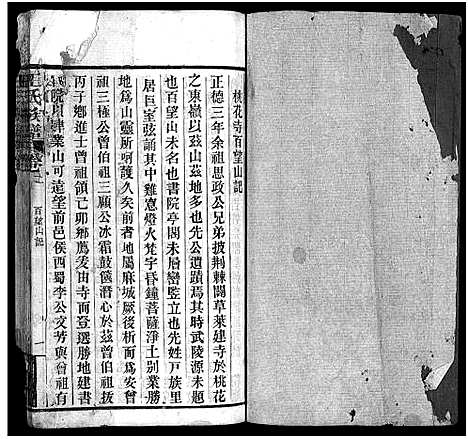 桃花寺百望山記
正德三年余祖思政公兄弟披荆棘闢草萊建寺於桃花
之東嶺以茲山茲地多先人公遺蹟焉其時武陵源未題
也百望山未名也書院亭閣未層巒監立也先姓戸族里
居巨室弦誦其中雞窓燈火梵宇昏鐘菩薩淨土别業勝
地為山靈所呵護久矣前者地屬麻城厥後析而為安曾
祖三極公曾伯祖三顧公氷霜鼓篋潛心於茲曾伯祖拔
丙子鄉進士曾祖領己卯鄉薦发由寺而登選勝地建書
院以肄業山可遠望前邑侯西蜀李公文芳與曾祖有
氏族譜
百望山記